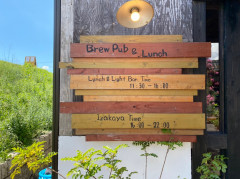 Brew Pub & Lunch
Lunch & Light Bar Time
11:30 - 16:00
Izakaya Time
16:00 - 22:00